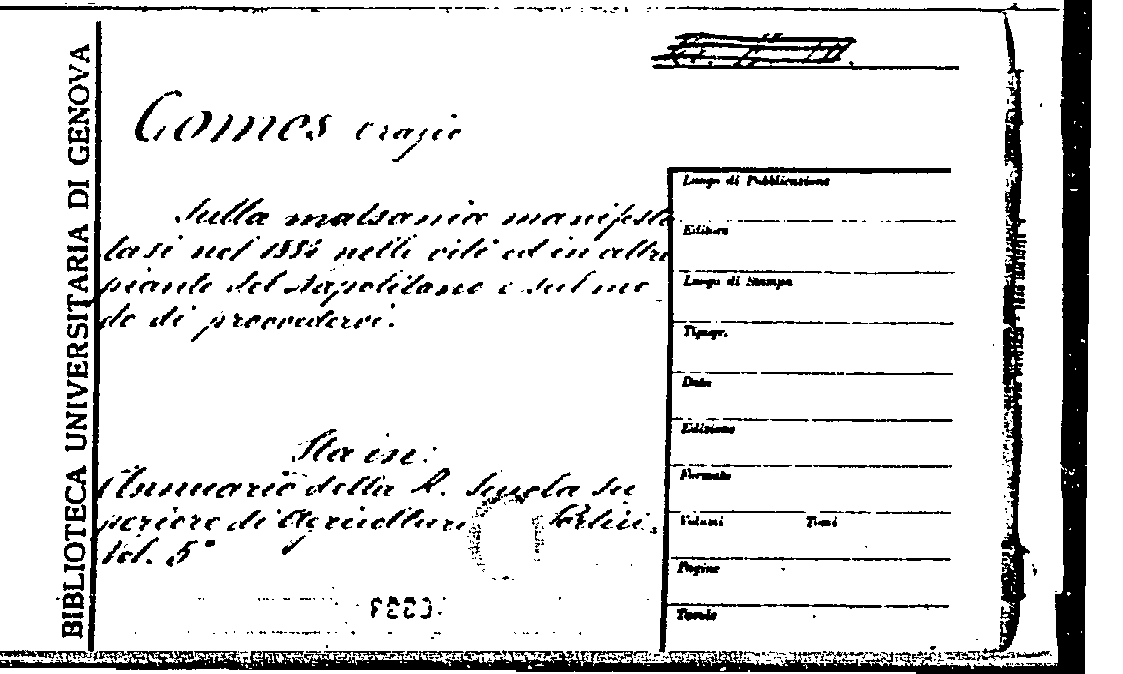 BIBLIOTECA UNIVERSITARIA DI GENOVA
Comes Orazio
Sulla malsania manifesta
tasi nel 1884 nelle viti ed in altre
piante del Napolitano e sul mo
do di provvedervi.
Sta in:
Annuario della R. Scuola Su
periore di Agricoltura Portici,
Vol. 5°
Luogo di Pubblicazione
Editore
Luogo di Stampa
Tipogr.
Data
Edizione
Formato
Volumi Tomi
Pagine
Tavole